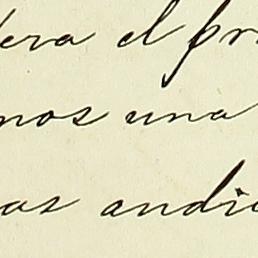 dera el pr
mos una
as andi